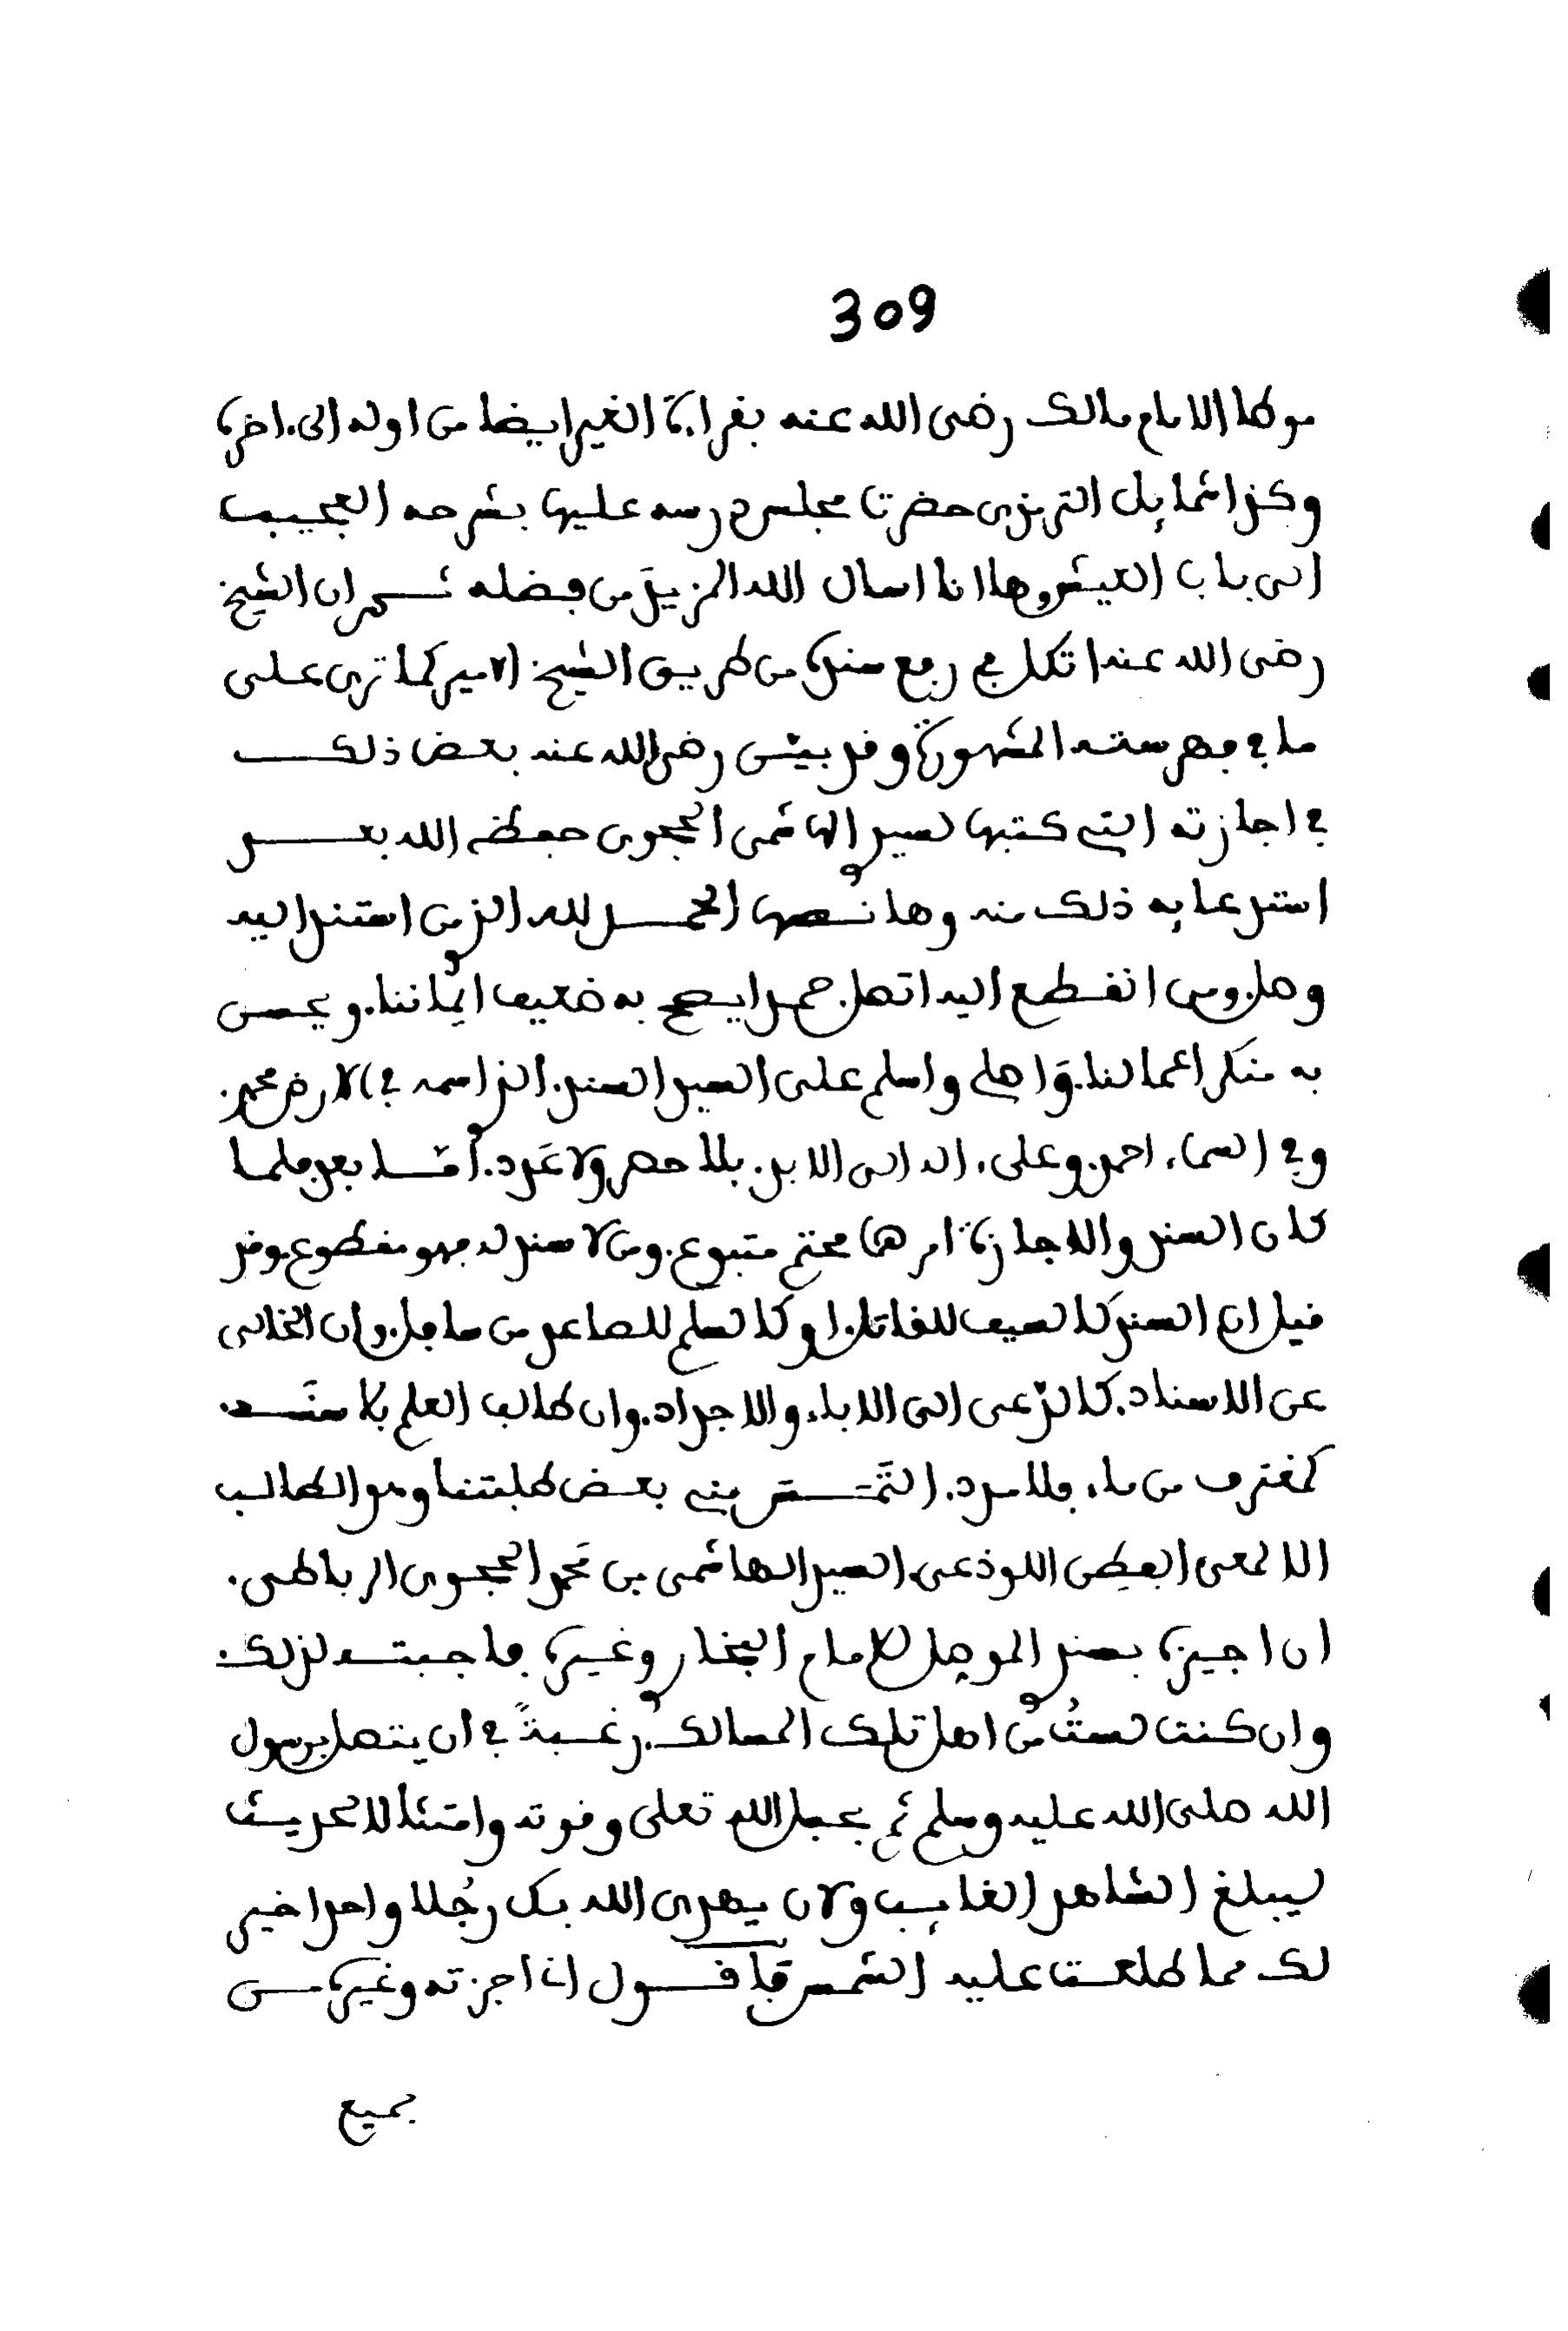 309
موطا الامام مالك رضى الله عنه بقراءة الغير ايضا من اوله الى ءاخره
وكذا شمايل الترمذى حضرنا مجلس درسه عليها بشرحه العجيب
الى باب العيش وها انا اسال الله المزيد من فضله ثــم ان الشيخ
رضى الله عنه اتكل في رفع سنده من طريق الشيخ الامير كما ترى على
ما في فهرسته المشهورة وقد بيّن رضى الله عنه بعض ذلك
في اجازته التي كتبها لسيد الهاشمى الحجوى حفظه الله بعــد
استدعايه ذلك منه وها نــصها الحمــد لله الذى استند اليه
وصل. ومن انقطع اليه اتصل. حمدا يصح به ضعيف ايماننا. ويحسن
به منكر اعمالنا. وَاصلي واسلم على السيد السند. الذ اسمه في الارض محمد.
وفي السماء احمد. وعلى ءاله الى الابد. بلا حصر ولا عَدد. أمّــا بعد فلما
كان السند والاجازة امرها محتم متبوع. ومن لا سند له فهو مقطوع. وقد
قيل ان السند كالسيف للمقاتل. او كالسلم للصاعد من سافل. وان الخالى
عن الاسناد. كالدّعى الى الاباء والاجداد. وان طالب العلم بلا سنَــد.
كمغترف من ماء بلا مدد. التَمَــسَ مني بعض طلبتنا وهو الطالب
الالمعى الفطِن اللوذعى. السيد الهاشمى بن مَحمد الحجوى الرباطى.
ان اجيزه بسند الموصل للامام البخار وغيره فاجبته لذلك.
وان كنت لستُ من اهل تلك المسالك. رغــبةً في ان يتصل برسول
الله صلى الله عليه وسلم ثم بحبل الله تعلى وقوته وامتثالا لحديث
ليبلغ الشاهد الغايب ولان يهدى الله بك رجُلا واحدا خير
لك مما طلعت عليه الشمس فَاقــول انى اجزته وغيره مــن
بجميع